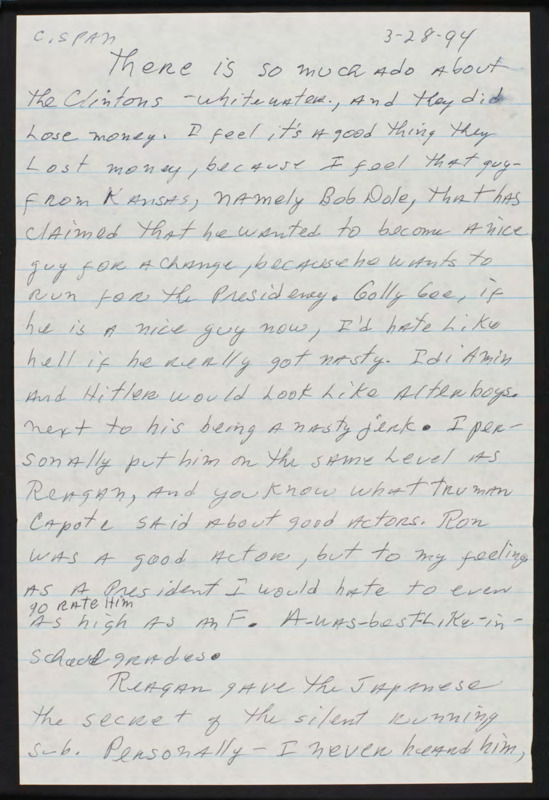 C.SPAN 3-28-94
There is so much ado about
the Clintons - whitewater., And they did
Lose money. I feel it's a good thing they
Lost money, because I feel that guy-
from Kansas, namely Bob Dole, that has
claimed that he wanted to become a nice
guy for a change, because he wants to
run for the Presidency. Golly Gee, if
he is a nice guy now, I'd hate Like
hell if he really got nasty. Idi Amin
and Hitler would Look Like Alter boys.
next to his being a nasty jerk. I per-
sonally put him on the same Level as
Reagan, and you know what Truman
Capote said about good actors. Ron
was a good actor, but to my feelings
as a President I would hate to even
go rate Him
as high as an F. A-was-best-Like-in-
school grades.
Reagan gave the Japanese
the secret of the silent running
sub. Personally - I never heard him,